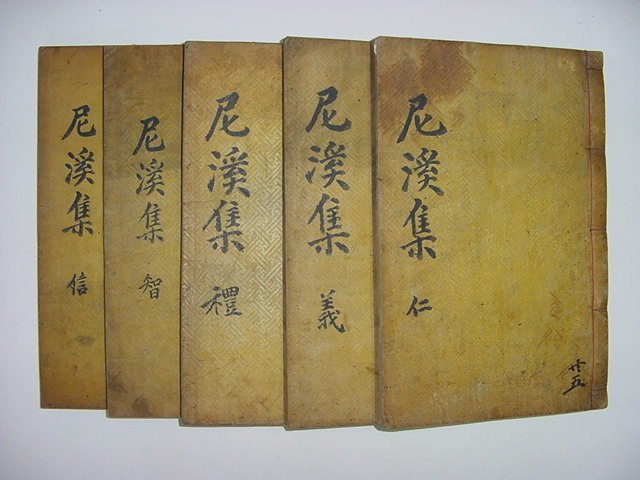 尼溪集 仁
廿五
尼溪集 義
尼溪集 禮
尼溪集 智
尼溪集 信